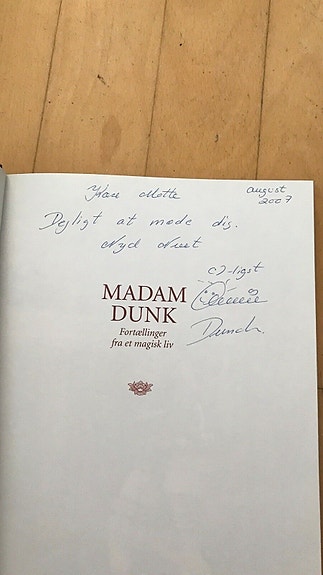 Kære Mette
august
2007
Dejligt at møde dig.
Nyd Nuet
MADAM
DUNK
Fortællinger
fra et magisk liv
Dunck.